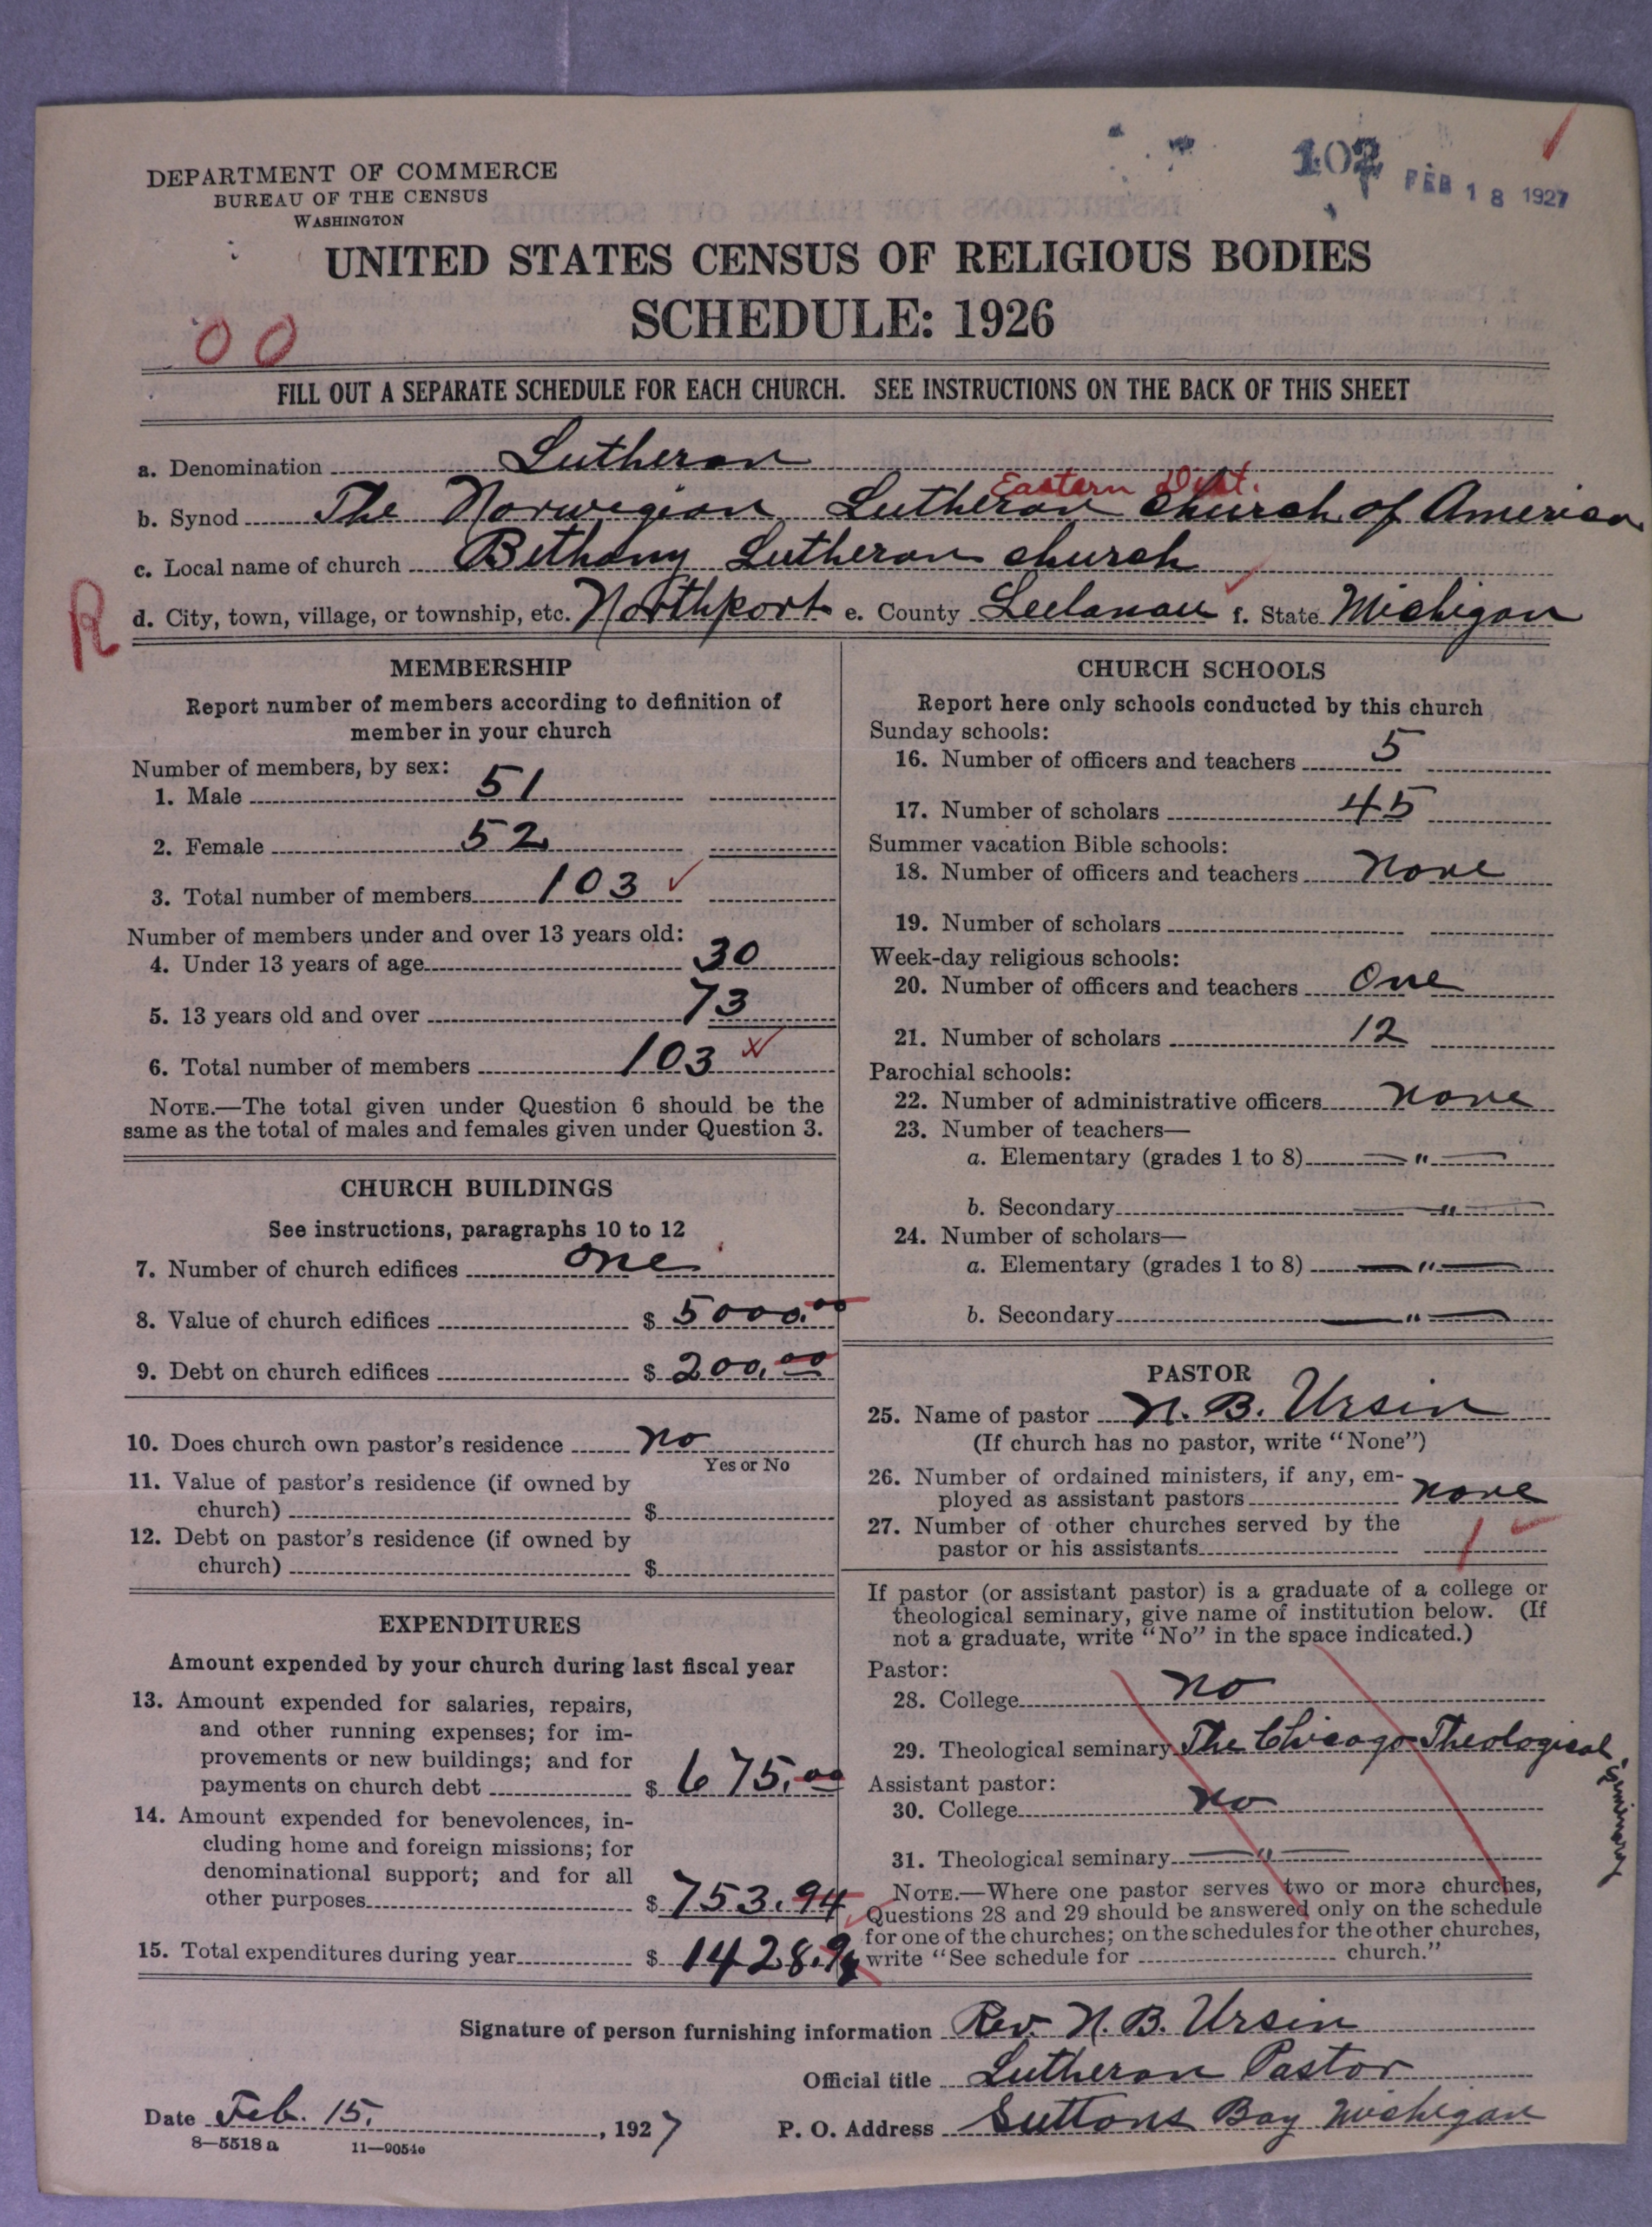 102 FEB 18 1927
DEPARTMENT OF COMMERCE
BUREAU OF THE CENSUS
WASHINGTON
UNITED STATES CENSUS OF RELIGIOUS BODIES
SCHEDULE: 1926
00
FILL OUT A SEPARATE SCHEDULE FOR EACH CHURCH. SEE INSTRUCTIONS ON THE BACK OF THIS SHEET
a. Denomination Lutheran
Eastern Dist.
b. Synod The Norwegian Lutheran Church of America
c. Local name of church Bethany Lutheran church
R
d. City, town, village, or township, etc. Northport e. County Leelanau f. State Michigan
MEMBERSHIP
Report number of members according to definition of
member in your church
Number of members, by sex:
1. Male 51
2. Female 52
3. Total number of members 103 ✓
Number of members under and over 13 years old:
4. Under 13 years of age 30
5. 13 years old and over 73
6. Total number of members 103
NOTE.—The total given under Question 6 should be the
same as the total of males and females given under Question 3.
CHURCH BUILDINGS
See instructions, paragraphs 10 to 12
7. Number of church edifices one
8. Value of church edifices $ 5000.00
9. Debt on church edifices $ 200.00
10. Does church own pastor's residence no
Yes or No
11. Value of pastor's residence (if owned by
church) $
12. Debt on pastor's residence (if owned by
church) $
EXPENDITURES
Amount expended by your church during last fiscal year
13. Amount expended for salaries, repairs,
and other running expenses; for im-
provements or new buildings; and for
payments on church debt $ 675.00
14. Amount expended for benevolences, in-
cluding home and foreign missions; for
denominational support; and for all
other purposes $ 753.94
15. Total expenditures during year $ 1428.94
CHURCH SCHOOLS
Report here only schools conducted by this church
Sunday schools:
16. Number of officers and teachers 5
17. Number of scholars 45
Summer vacation Bible schools:
18. Number of officers and teachers none
19. Number of scholars
Week-day religious schools:
20. Number of officers and teachers One
21. Number of scholars 12
Parochial schools:
22. Number of administrative officers none
23. Number of teachers—
a. Elementary (grades 1 to 8) — " —
b. Secondary — " —
24. Number of scholars—
a. Elementary (grades 1 to 8) — " —
b. Secondary — " —
PASTOR
25. Name of pastor N. B. Ursin
(If church has no pastor, write "None")
26. Number of ordained ministers, if any, em-
ployed as assistant pastors none
27. Number of other churches served by the
pastor or his assistants 1 ✓
If pastor (or assistant pastor) is a graduate of a college or
theological seminary, give name of institution below. (If
not a graduate, write "No" in the space indicated.)
Pastor:
28. College no
29. Theological seminary The Chicago Theological Seminary
Assistant pastor:
30. College no
31. Theological seminary — " —
NOTE.—Where one pastor serves two or more churches,
Questions 28 and 29 should be answered only on the schedule
for one of the churches; on the schedules for the other churches,
write "See schedule for church."
Signature of person furnishing information Rev. N. B. Ursin
Official title Lutheran Pastor
Date Feb. 15, 1927 P. O. Address Suttons Bay Michigan
8—5518 a 11—9054e